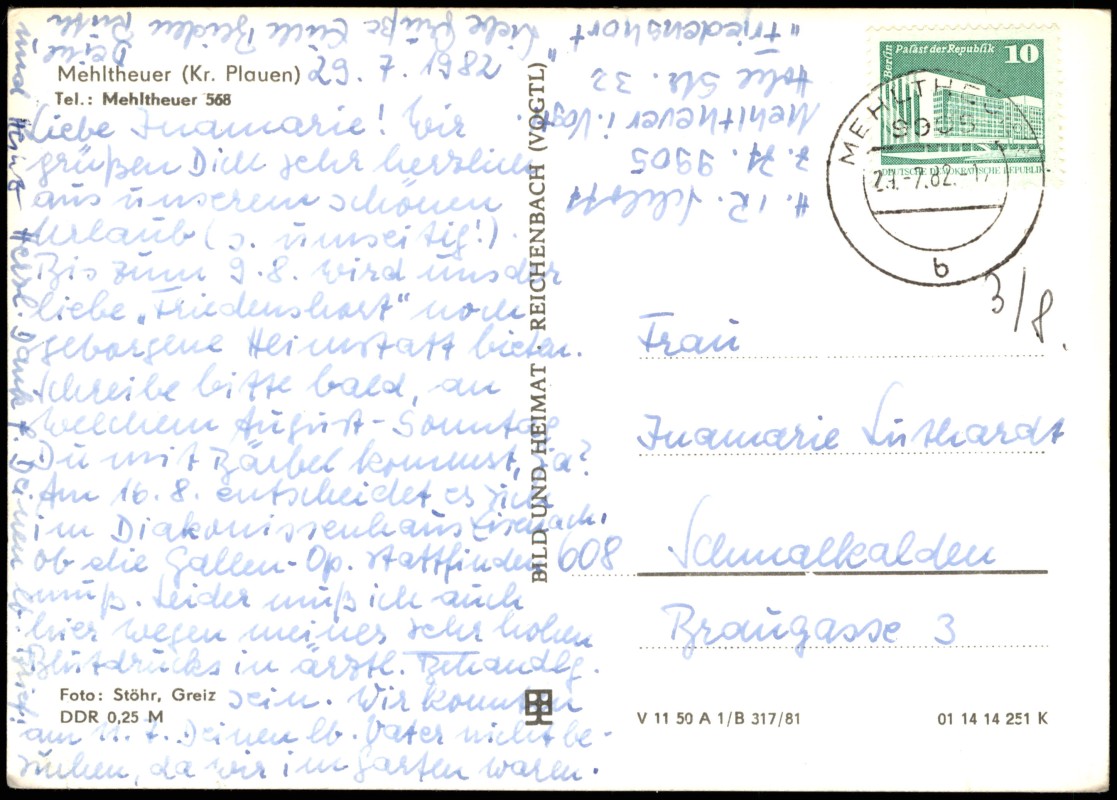 Mehltheuer (Kr. Plauen) 29. 7. 1982
Tel.: Mehltheuer 568
Liebe Inamarie! Wir
grüßen Dich sehr herzlich
aus unserem schönen
Urlaub (s. umseitig!).
Bis zum 9.8. wird uns der
liebe „Friedenshort" noch
geborgene Heimstatt bieten.
Schreibe bitte bald, an
welchem August-Sonntag
Du mit Bärbel kommst, ja?
Am 16.8. entscheidet es sich
im Diakonissenhaus Eisenach,
ob die Gallen-Op. stattfinden
muß. Leider muß ich auch
hier wegen meines sehr hohen
Blutdrucks in ärztl. Behandlg.
sein. Wir konnten
am 11.7. Deinen lb. Vater nicht be-
suchen, da wir im Garten waren.
Herzl. Dank f. Deinen lb. Brief!
Liebe Grüße Euch Beiden Ruth
Deine
und Heinz
Foto: Stöhr, Greiz
DDR 0,25 M
BILD UND HEIMAT · REICHENBACH (VOGTL)
H. R.
z. Zt. 9905
Mehltheuer i. Vogtl.
Hohe Str. 32
"Friedenshort"
Berlin Palast der Republik 10
DEUTSCHE DEMOKRATISCHE REPUBLIK
MEHLTHEUER
9905
29.-7.82.-17
b
3/8.
Frau
Inamarie Luthardt
608 Schmalkalden
Braugasse 3
V 11 50 A 1/B 317/81
01 14 14 251 K